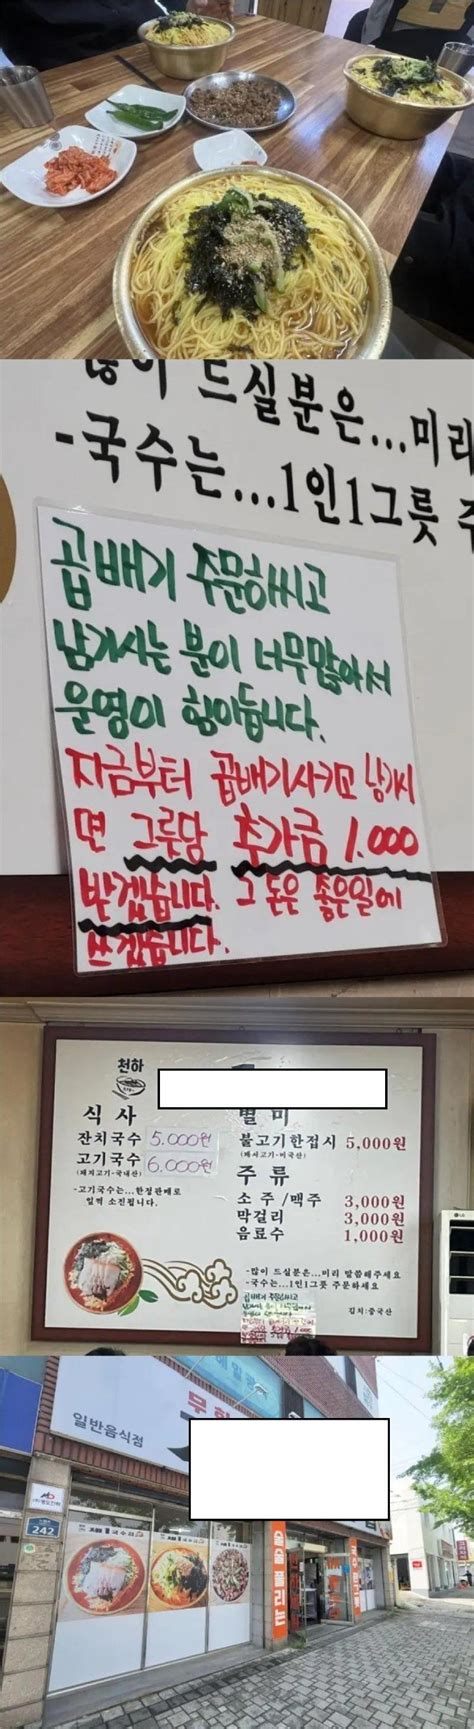 많이 드실분은...미리
-국수는...1인1그릇 주
곱배기 주문하시고
남기시는 분이 너무많아서
운영이 힘이듭니다.
지금부터 곱배기시키고 남기시
면 그릇당 추가금 1.000
받겠습니다. 그 돈은 좋은일에
쓰겠습니다.
천하
식사
잔치국수 5.000원
고기국수 6.000원
(돼지고기-국내산)
-고기국수는...한정판매로
일찍 소진됩니다.
별미
불고기한접시 5,000원
(돼지고기-미국산)
주류
소주/맥주 3,000원
막걸리 3,000원
음료수 1,000원
-많이 드실분은...미리 말씀해주세요
-국수는...1인1그릇 주문하세요
곱배기 주문하시고
김치:중국산
LG
일반음식점
242
술술 풀리는